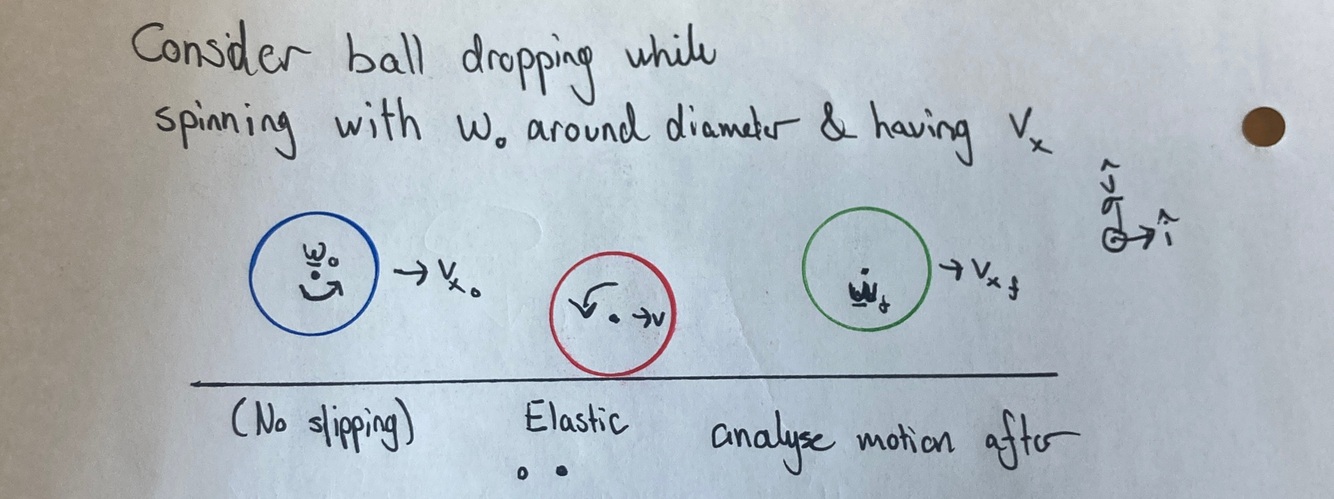 Consider ball dropping while
spinning with ω₀ around diameter & having Vₓ
ω₀ → Vₓ₀
→ v
ω_f → Vₓ_f
ĵ
î
(No slipping) Elastic analyse motion after